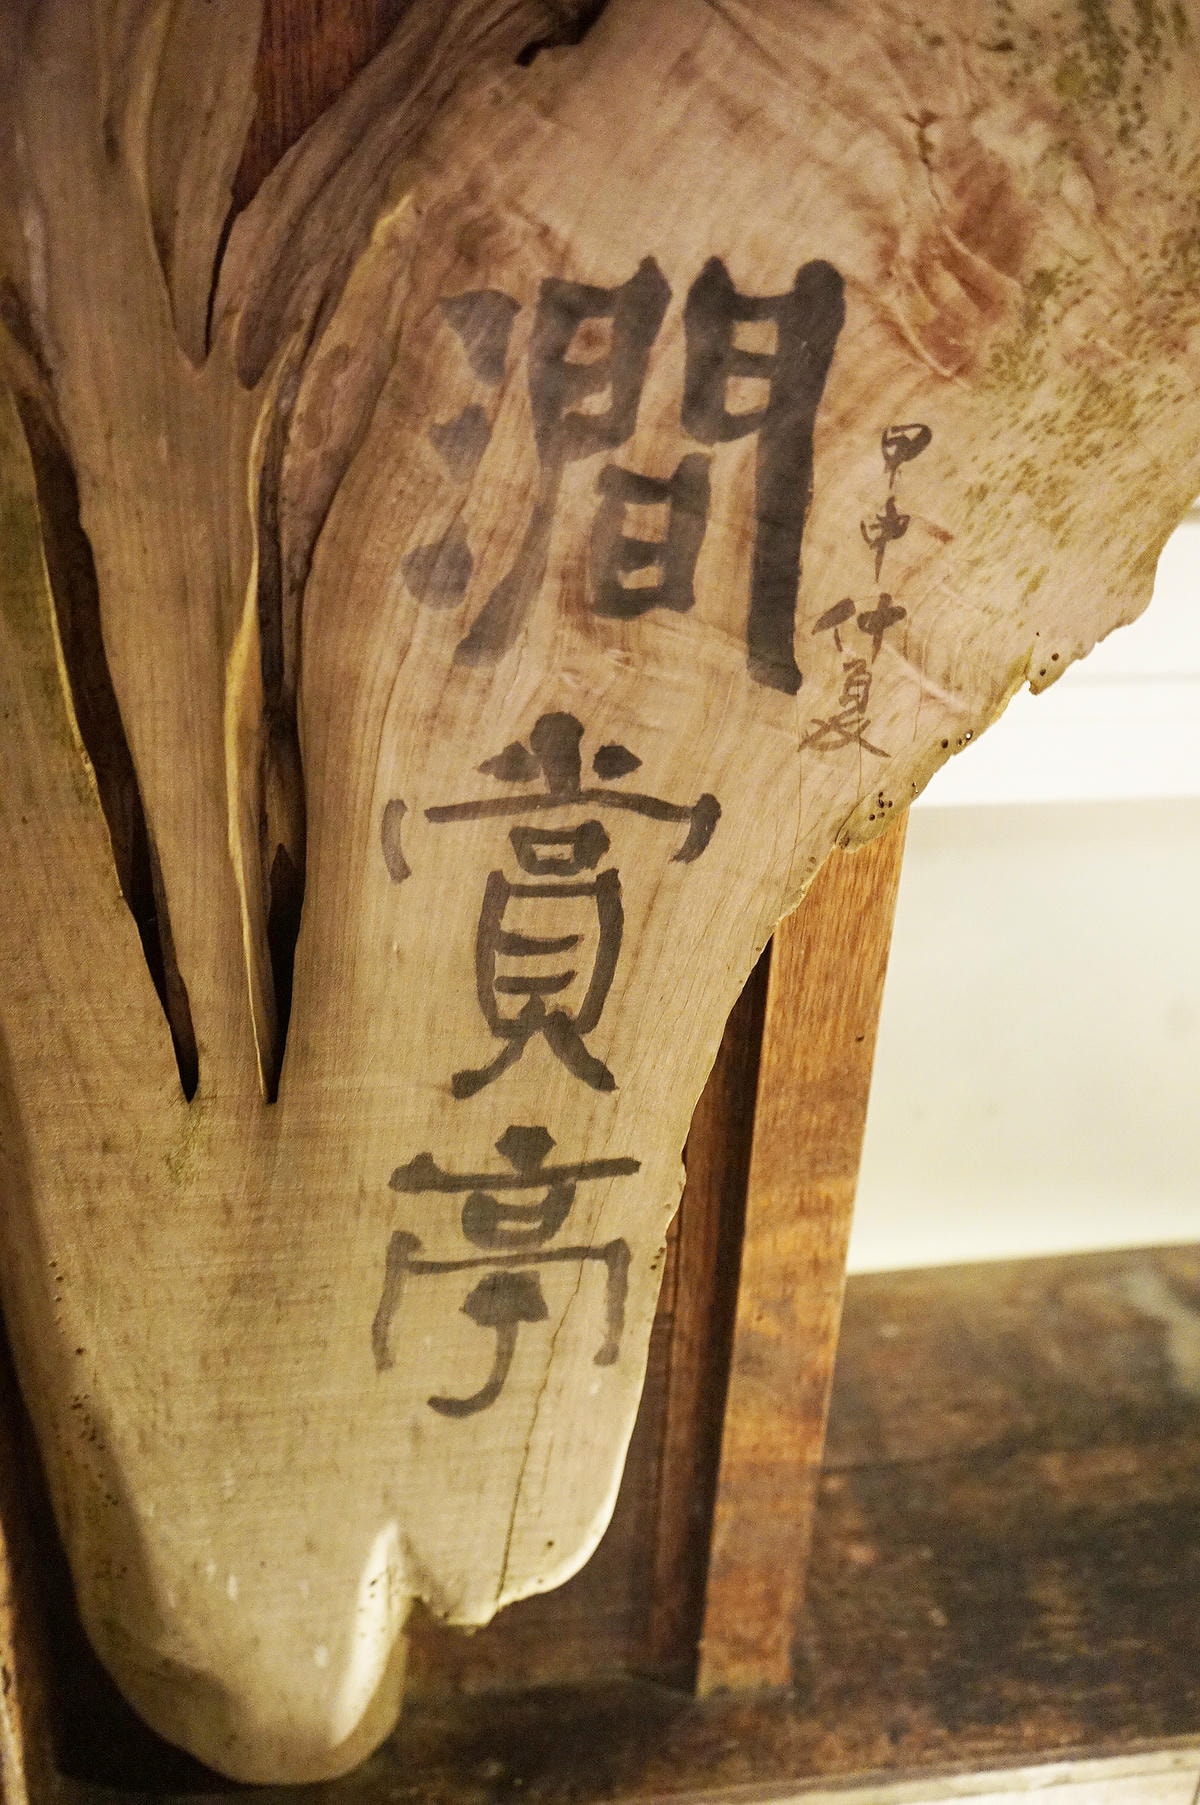 甲申仲夏
澗賞亭